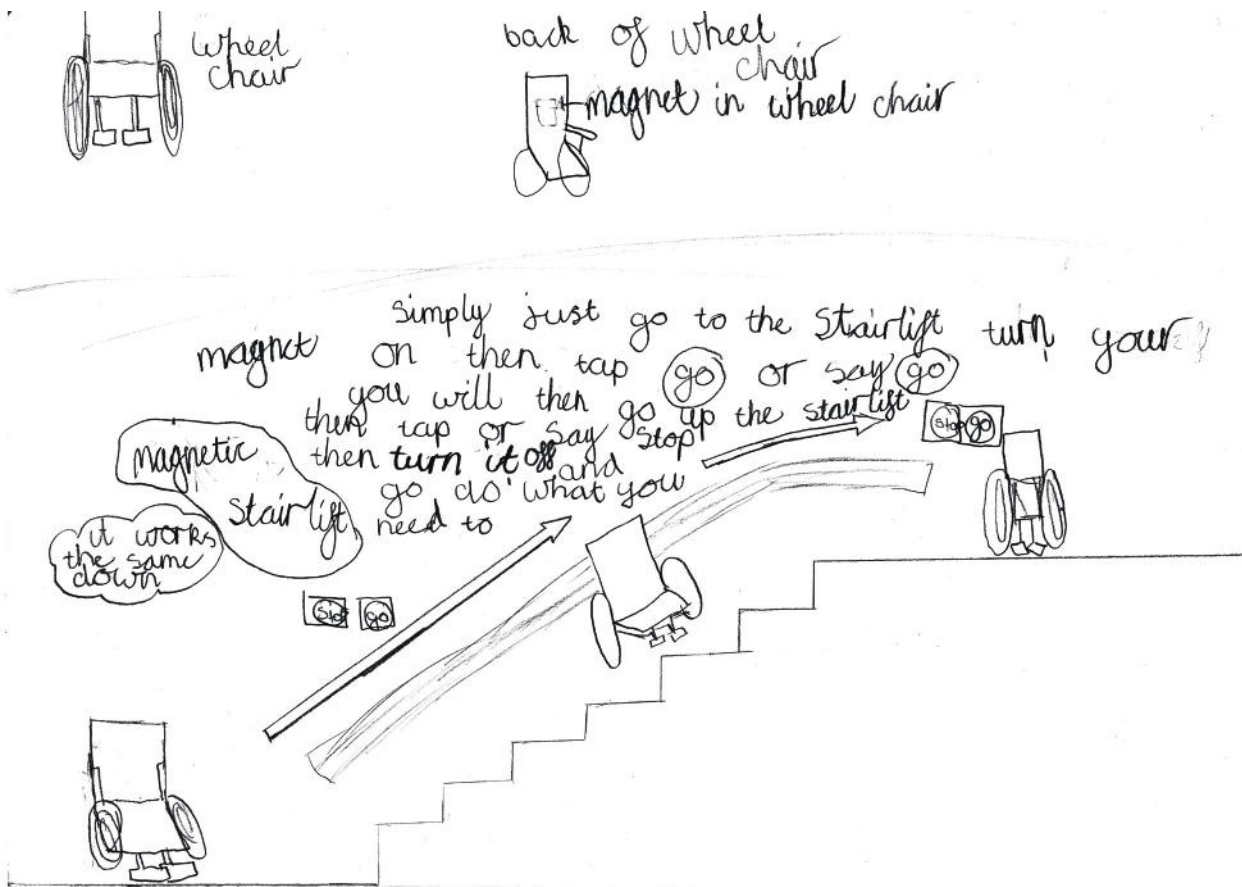 wheel
chair
back of wheel
chair
magnet in wheel chair
simply just go to the Stairlift turn your
magnet on then tap go or say go
you will then go up the stairlift
then tap or say stop
then turn it off and
go do what you
need to
magnetic
stairlift
it works
the same
down
stop go
stop go